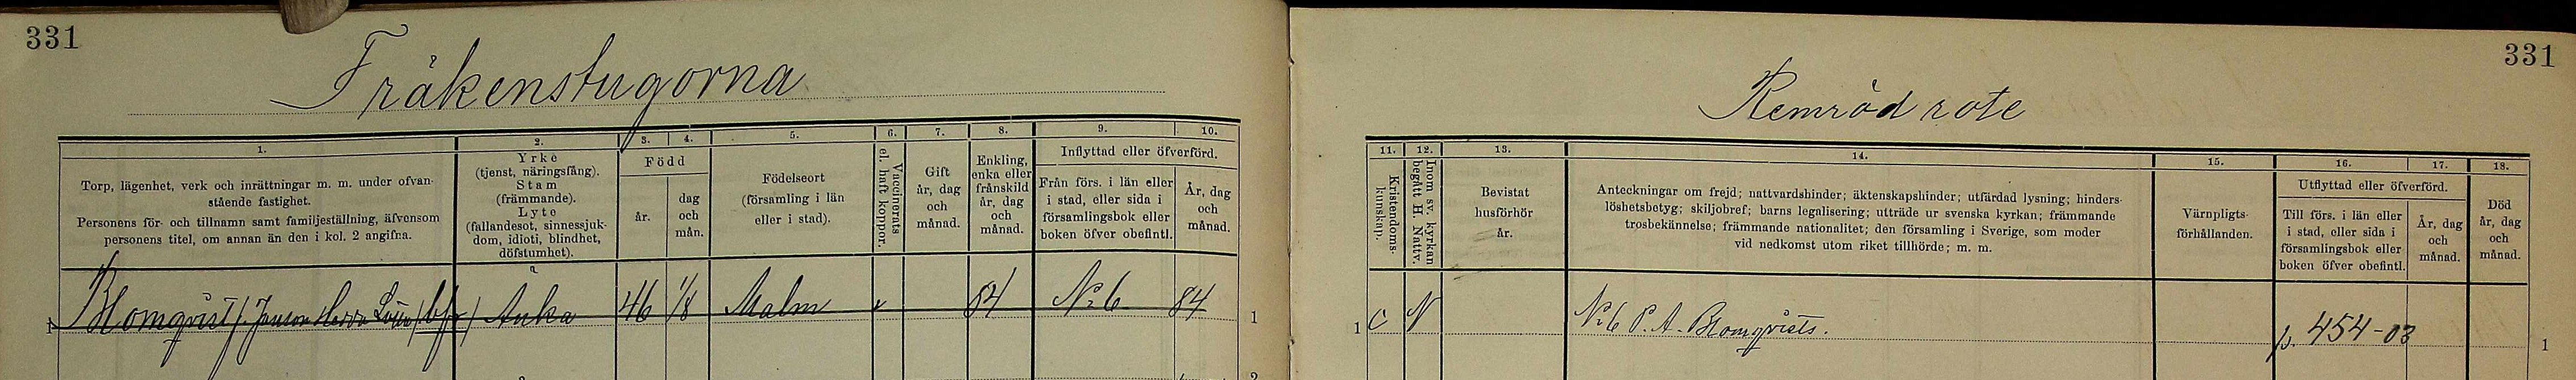 331
Fräkenstugorna
1.
Torp, lägenhet, verk och inrättningar m. m. under ofvan-
stående fastighet.
Personens för- och tillnamn samt familjeställning, äfvensom
personens titel, om annan än den i kol. 2 angifna.
2.
Yrke
(tjenst, näringsfång).
Stam
(främmande).
Lyte
(fallandesot, sinnessjuk-
dom, idioti, blindhet,
döfstumhet).
3.
4.
Född
år.
dag
och
mån.
5.
Födelseort
(församling i län
eller i stad).
6.
Vaccinerats
el. haft koppor.
7.
Gift
år, dag
och
månad.
8.
Enkling,
enka eller
frånskild
år, dag
och
månad.
9.
10.
Inflyttad eller öfverförd.
Från förs. i län eller
i stad, eller sida i
församlingsbok eller
boken öfver obefintl.
År, dag
och
månad.
1 Blomqvist, Enka 46 1/8 Malm 84 No 6 84 1
2
331
Remröd rote
11.
Kristendoms-
kunskap.
12.
Inom sv. kyrkan
begått H. Nattv.
13.
Bevistat
husförhör
år.
14.
Anteckningar om frejd; nattvardshinder; äktenskapshinder; utfärdad lysning; hinders-
löshetsbetyg; skiljobref; barns legalisering; utträde ur svenska kyrkan; främmande
trosbekännelse; främmande nationalitet; den församling i Sverige, som moder
vid nedkomst utom riket tillhörde; m. m.
15.
Värnpligts-
förhållanden.
16.
17.
Utflyttad eller öfverförd.
Till förs. i län eller
i stad, eller sida i
församlingsbok eller
boken öfver obefintl.
År, dag
och
månad.
18.
Död
år, dag
och
månad.
1 C N No 6 P. A. Blomqvists. p. 454-03 1